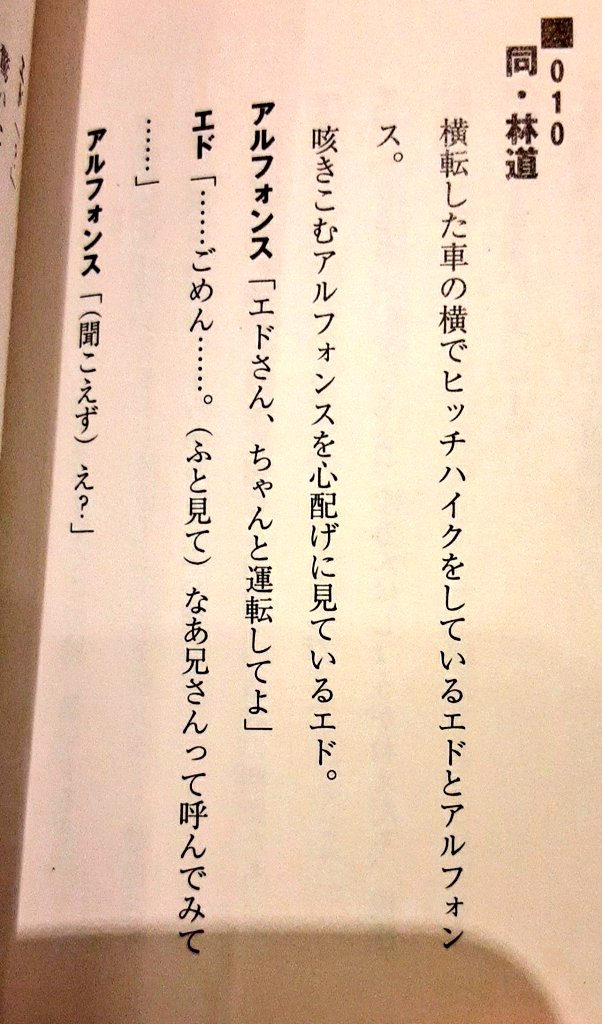 ■010
同・林道
横転した車の横でヒッチハイクをしているエドとアルフォン
ス。
咳きこむアルフォンスを心配げに見ているエド。
アルフォンス「エドさん、ちゃんと運転してよ」
エド「……ごめん……。(ふと見て)なあ兄さんって呼んでみて
……」
アルフォンス「(聞こえず)え?」